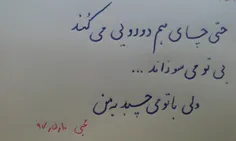 حتی چای هم دورویی می کند
بی تو می سوزاند ...
ولی با تو می چسبد به من
۹۷